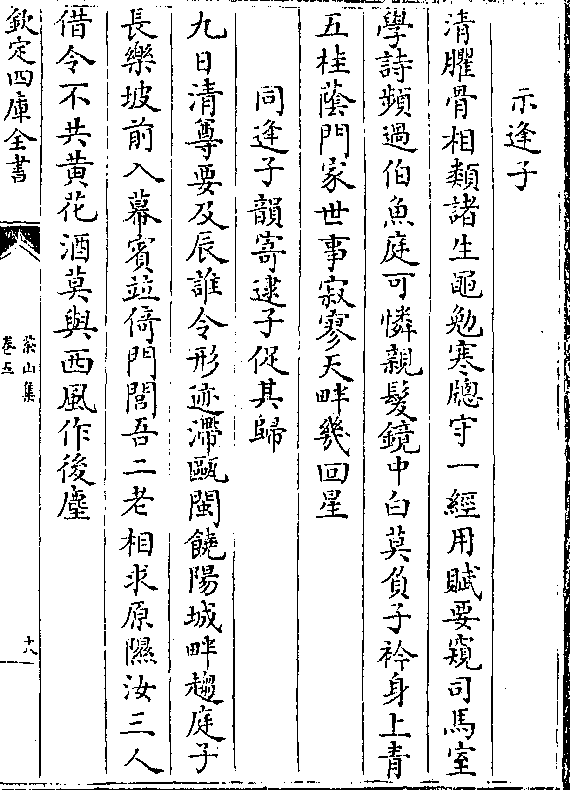 示逢子
清臞骨相類諸生黽勉寒牕守一經用賦要窺司馬室
學詩頻過伯魚庭可憐親髮鏡中白莫負子衿身上青
五桂蔭門家世事寂寥天畔幾回星
同逢子韻寄逮子促其歸
九日清尊要及辰誰令形迹滯甌閩饒陽城畔趨庭子
長樂坡前入幕賓並倚門閭吾二老相求原隰汝三人
借令不共黄花酒莫與西風作後塵
欽定四庫全書
柴山集
卷五
十八